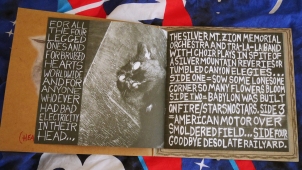 FOR ALL
THE FOUR
LEGGED
ONES AND
FOR BRUIS
ED HEARTS
WORLDWIDE
AND FOR
ANYONE
WHOEVER
HAD BAD
ELECTRICITY
IN THEIR
HEAD...
THE SILVER MT. ZION MEMORIAL
ORCHESTRA AND TRA-LA-LA BAND
WITH CHOIR PLAYS IN SPITE OF
A SILVER MOUNTAIN REVERIES OR
TUMBLED CANYON ELEGIES...
SIDE ONE=SOW SOME LONESOME
CORNER SO MANY FLOWERS BLOOM
SIDE TWO=BABYLON WAS BUILT
ON FIRE/STARSNOSTARS. SIDE 3
=AMERICAN MOTOR OVER
SMOLDERED FIELD... SIDE FOUR
GOODBYE DESOLATE RAILYARD.